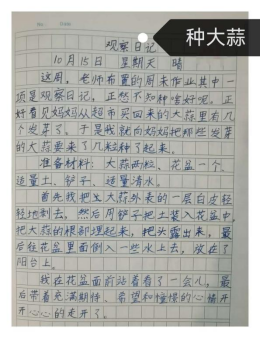 种大蒜
观察日记
10月15日 星期天 晴
这周，老师布置的周末作业其中一
项是观察日记，正愁不知种啥好呢。正
好看见妈妈从超市买回来的大蒜里有几
个发芽了。于是我就向妈妈把那些发芽
的大蒜要来了几粒种了起来。
准备材料：大蒜两粒、花盆一个、
适量土、铲子、适量清水。
首先我把大蒜外表的一层白皮轻
轻地剥去。然后用铲子把土装入花盆中，
把大蒜的根部埋起来，把头露出来，最
后往花盆里面倒入一些水上去，放在了
阳台上。
我在花盆面前站着看了一会儿，最
后带着充满期待、希望和憧憬的心情开
开心心的走开了。